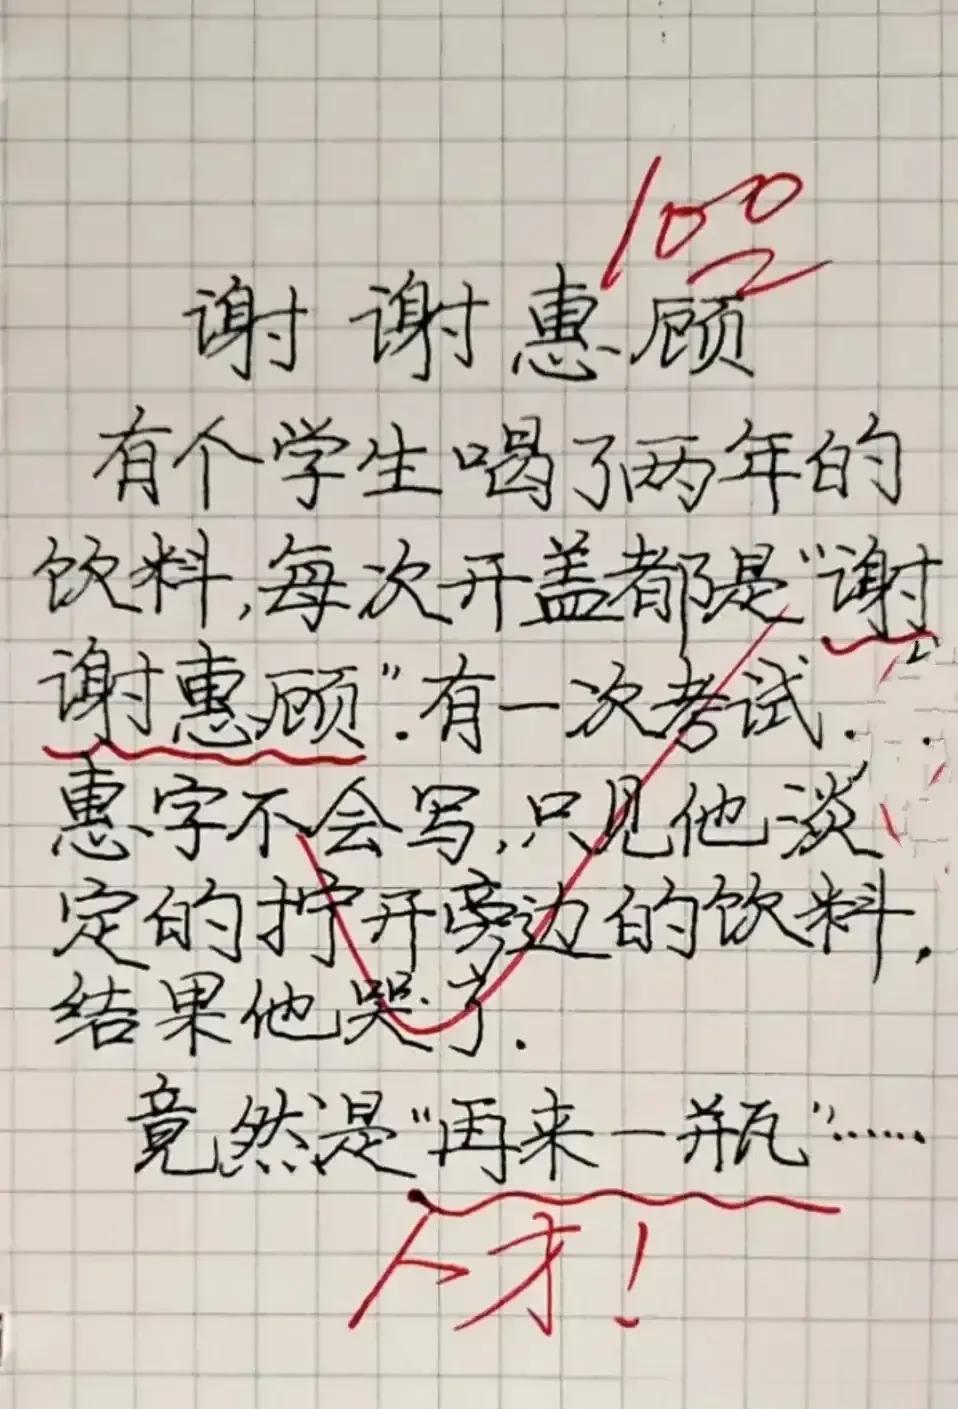 100
谢谢惠顾
有个学生喝了两年的
饮料,每次开盖都是“谢
谢惠顾”.有一次考试.
惠字不会写,只见他淡
定的拧开旁边的饮料,
结果他哭了.
竟然是“再来一瓶”……
人才!